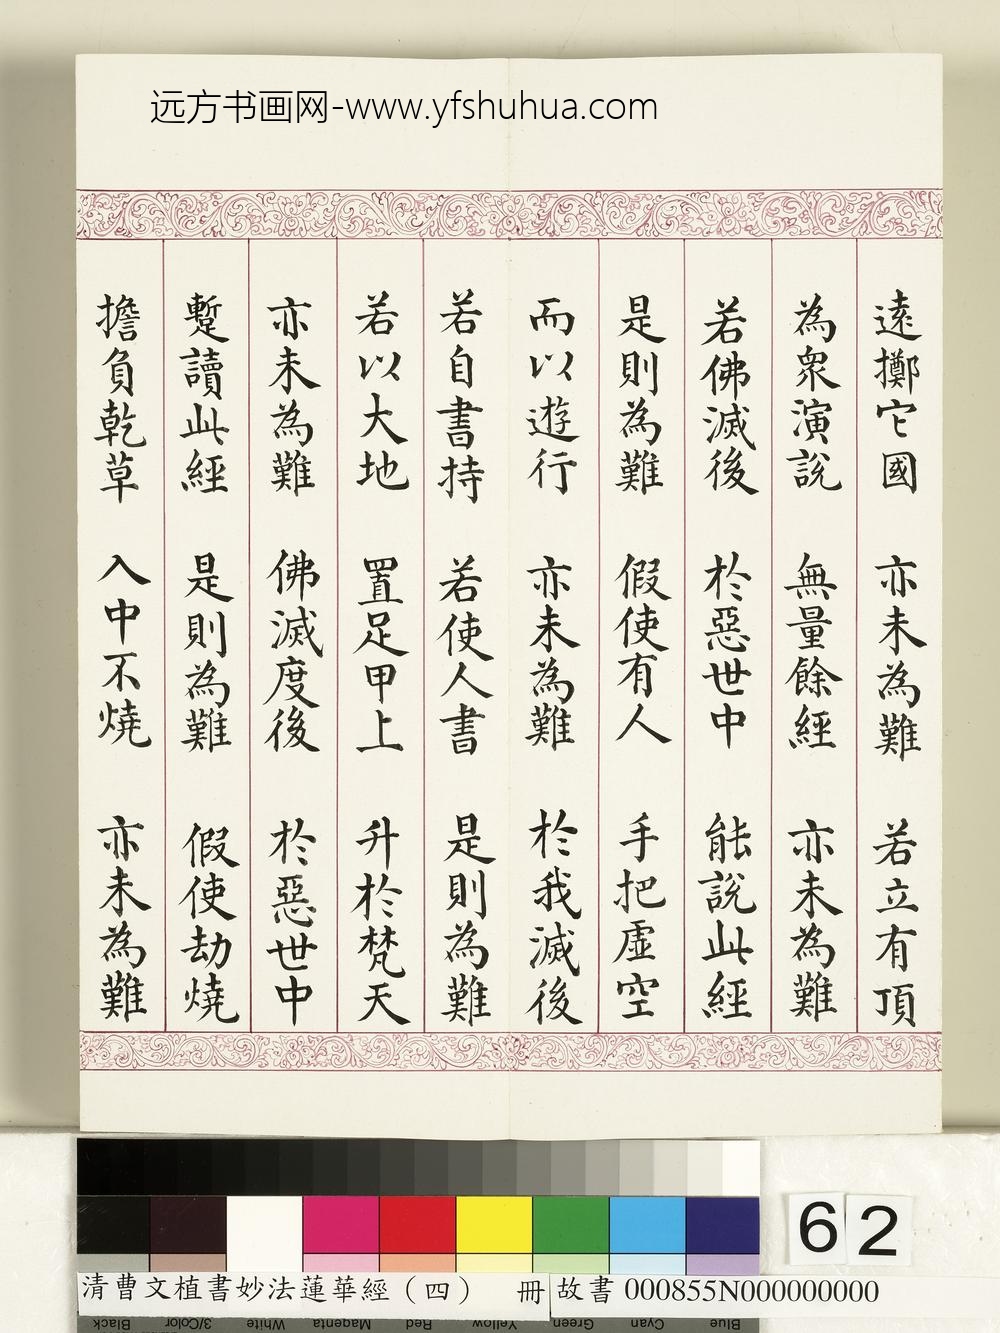 远方书画网-www.yfshuhua.com
遠擲它國 亦未為難 若立有頂
為衆演說 無量餘經 亦未為難
若佛滅後 於惡世中 能說此經
是則為難 假使有人 手把虛空
而以遊行 亦未為難 於我滅後
若自書持 若使人書 是則為難
若以大地 置足甲上 升於梵天
亦未為難 佛滅度後 於惡世中
蹔讀此經 是則為難 假使劫燒
擔負乾草 入中不燒 亦未為難
62
清曹文植書妙法蓮華經（四） 冊 故書 000855N000000000
Black 3/Color White Magenta Red Yellow Green Cyan Blue